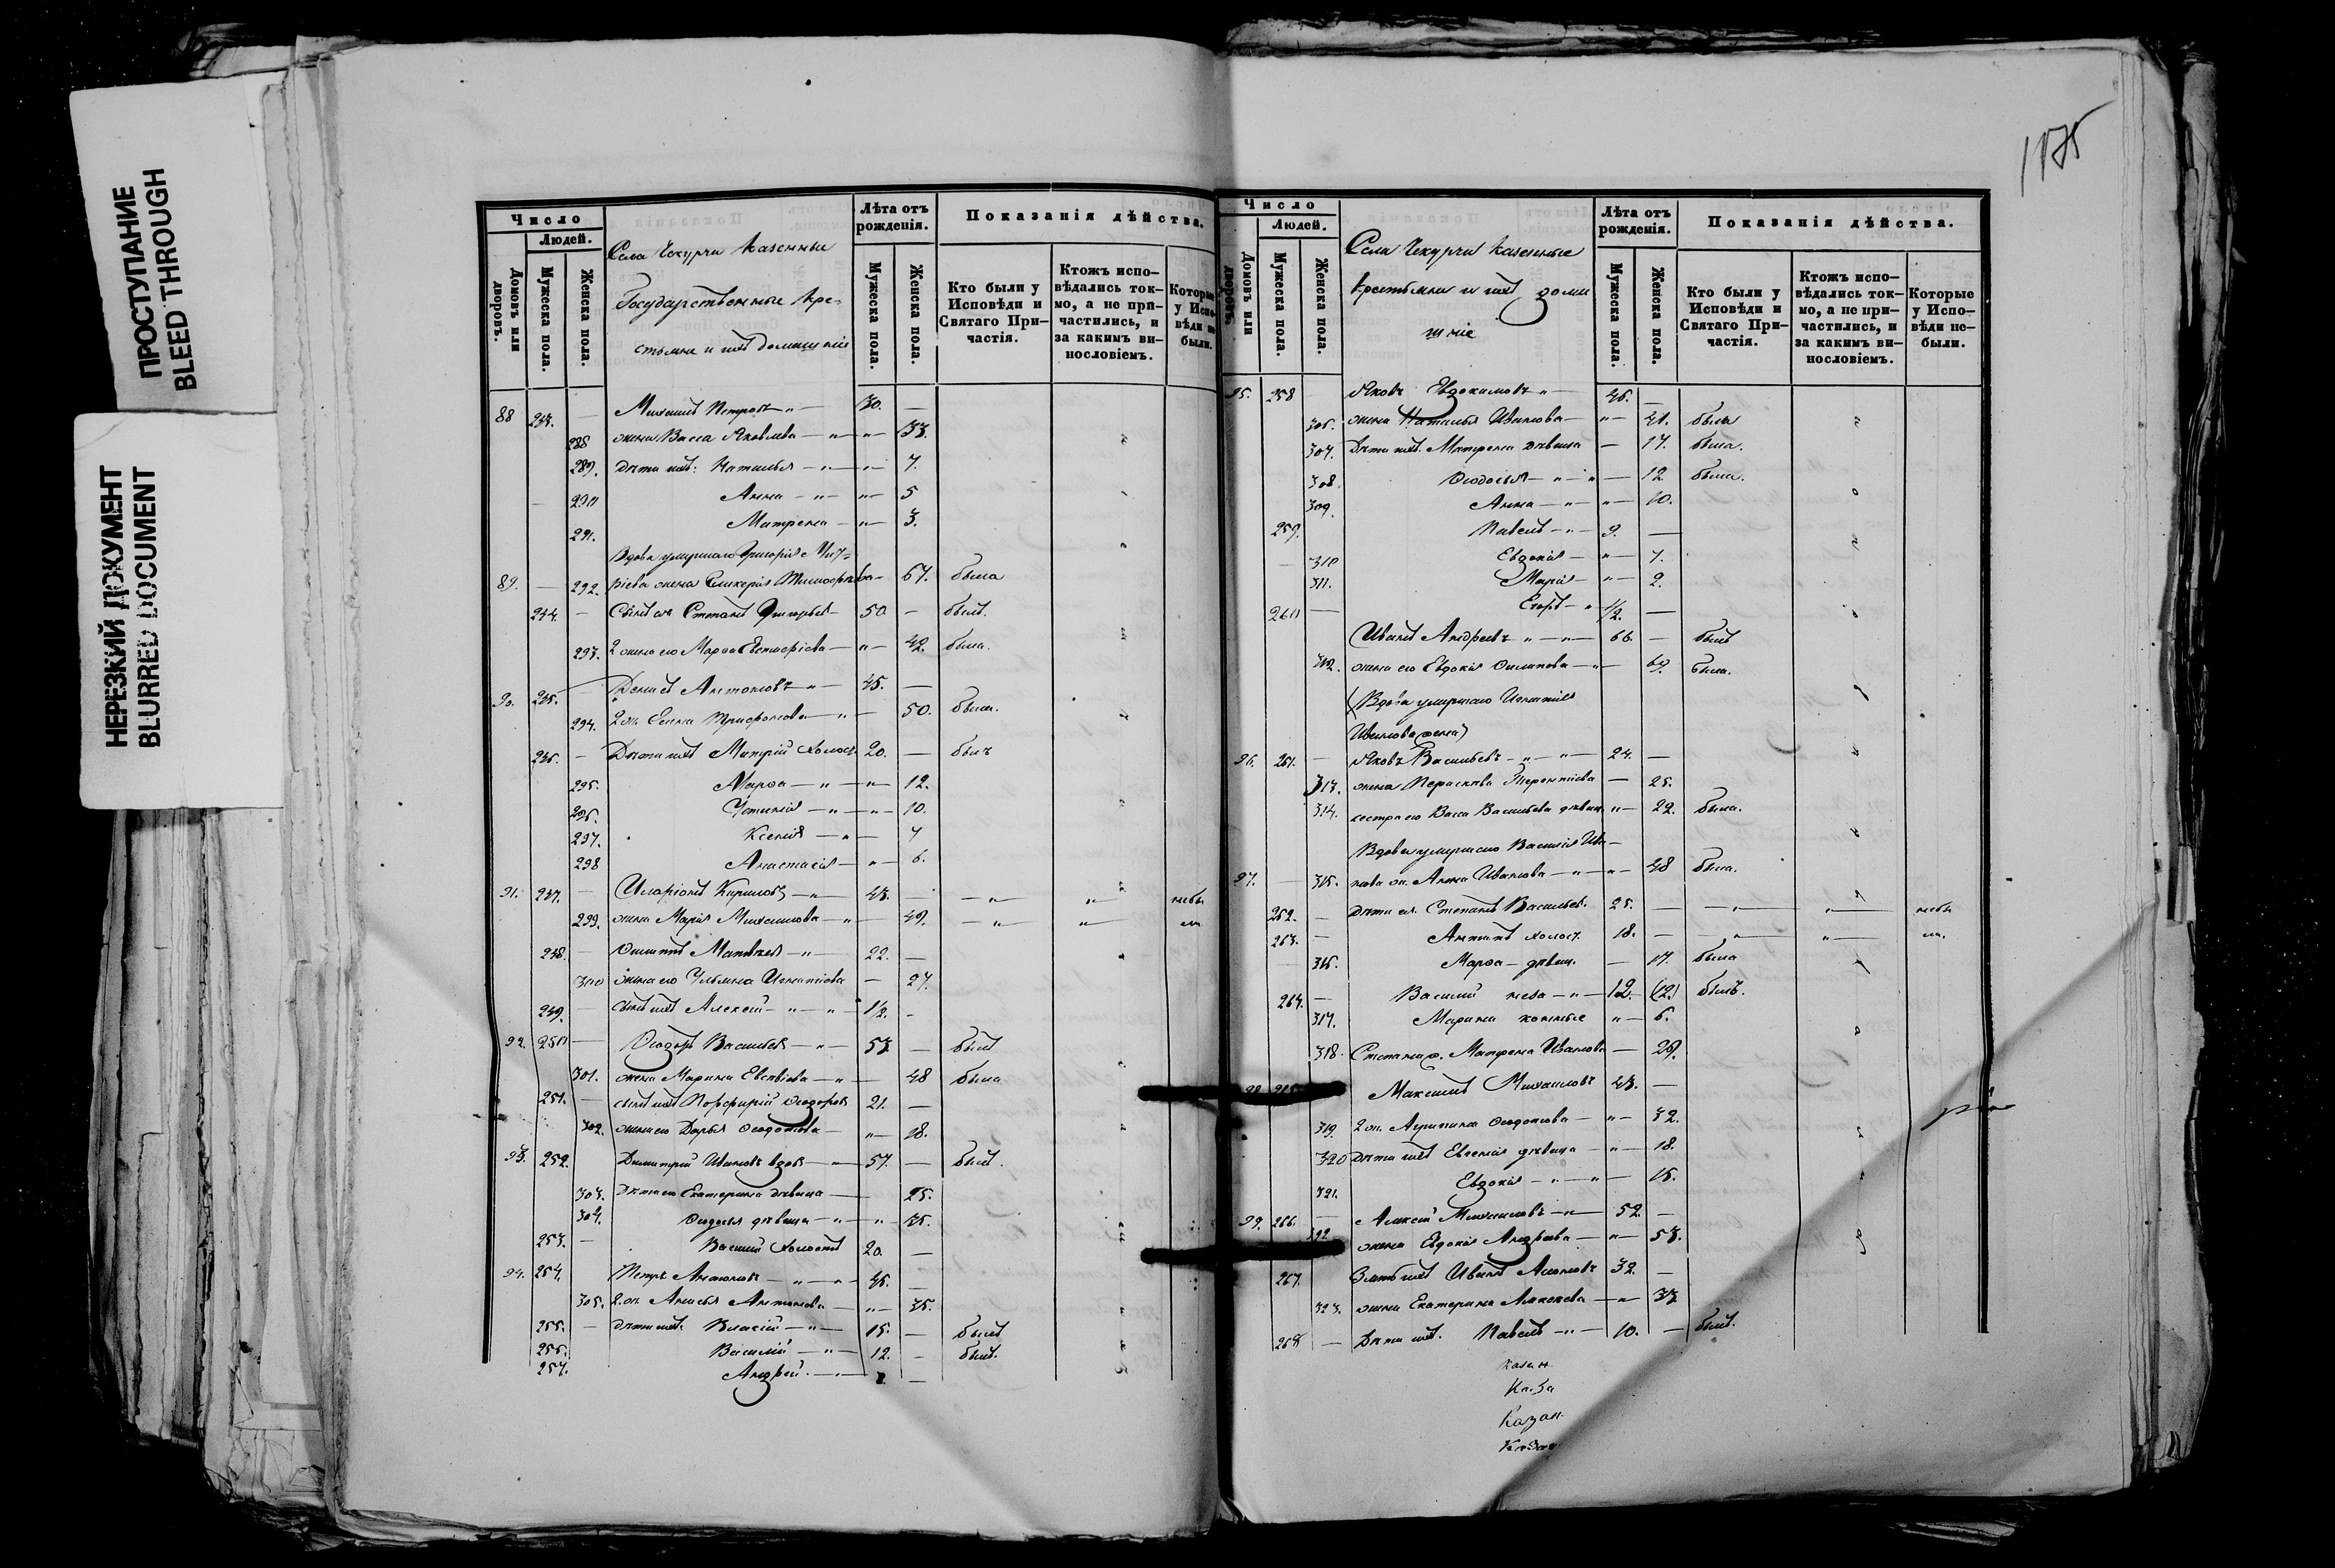 ПРОСТУПАНИЕ
BLEED THROUGH
НЕРЕЗКИЙ ДОКУМЕНТ
BLURRED DOCUMENT
Число
Людей.
Домовъ или дворовъ.
Мужеска пола.
Женска пола.
Села Чекурчи казенные
Государственные кре-
стьяне и ихъ домашніе
Лѣта отъ рожденія.
Мужеска пола.
Женска пола.
Показанія дѣйства.
Кто были у Исповѣди и Святаго При-частія.
Ктожъ испо-вѣдались ток-мо, а не при-частились, и за какимъ ви-нословіемъ.
Которые у Испо-вѣди не были.
88 243. — Михаилъ Петровъ 30. —
288 жена Васса Яковлева — 33.
289. дѣти ихъ: Наталья — 7.
290 Анна — 5
291. Матрена — 3.
Вдова умершаго Григорія
89. — 292. жена Гликерія — 67. была
244. — Сынъ ея Степанъ Григорьев 50 — былъ.
293. 2 жена его Марѳа — 42. была.
90. 245. — Денисъ Антоновъ 45. —
294. 2 ж. Елена Трифонова — 50. была.
246. — Дѣти ихъ Холост. 20. — былъ
295. Марѳа — 12.
296. Устинія — 10.
297. Ксенія — 7
298 Анастасія — 6.
91. 247. — Иларіонъ Кириловъ 43. — небы
299. жена Марія Михаилова — 49. ли
248. — Филиппъ 22. —
300 жена его Ульяна Игнатіева — 27.
249. — сынъ ихъ Алексѣй 1/2. —
92. 250 — Ѳеодоръ Васильев 53 — былъ
301. жена Марина — 48 была
251. — сынъ ихъ Порфирій Ѳеодоров 21. —
302. жена его Дарья Ѳедотова — 18.
93. 252. Димитрій Ивановъ вдов 57. — былъ.
303. Дѣти его Екатерина дѣвица — 25.
304. дѣвица —
253. — Василій Холостъ 20 —
94. 254. Петръ Антоновъ 45. —
305. 2 ж. Анисья Антонова — 35.
255. — дѣти ихъ. Власій 15. — былъ
256. Василій 12. — былъ.
257. Андрей —
1175
Число
Людей.
Домовъ или дворовъ.
Мужеска пола.
Женска пола.
Села Чекурчи казенные
крестьяне и ихъ дома
шніе
Лѣта отъ рожденія.
Мужеска пола.
Женска пола.
Показанія дѣйства.
Кто были у Исповѣди и Святаго При-частія.
Ктожъ испо-вѣдались ток-мо, а не при-частились, и за какимъ ви-нословіемъ.
Которые у Испо-вѣди не-были.
95. 258 Яковъ Евдокимовъ 46. —
306. жена Наталья Иванова — 41. была
307. Дѣти ихъ. Матрена дѣвица — 17. была.
308 Ѳеодосья — 12 была.
309. Анна — 10.
259. Павелъ 9. —
310 Евдокія — 7.
311. Марія — 2.
260 — Егоръ 1/2. —
Иванъ Андреевъ 66. — былъ
312. жена его Евдокія Филипова — 69. была.
(Вдова умершаго Игнатія
Иванова жена)
96. 261. — Яковъ Васильевъ 24. —
313. жена Терентіева — 25.
314. сестра его Васса Васильева дѣвица — 22. была.
Вдова умершаго Василія Ива-
97. — 315. нова ж. Анна Иванова — 48 была.
262. — Дѣти ея. Степанъ Васильев. 25. — небы
263. — Антипъ холост. 18. — ли.
316. Марѳа — дѣвиц. — 17. была
264. — Василій неза 12. (12.) былъ.
317. Марина конные — 6.
318. Степана ж. Матрена Иванова — 29.
98 265 Максимъ Михаиловъ 43. —
319. 2 ж. Агрипина — 32.
320 Дѣти ихъ Евгенія дѣвица — 18.
321. Евдокія — 15.
99. 266. — Алексѣй Михаиловъ 52. —
322 жена Евдокія Андреева — 53.
267. Зять ихъ Иванъ 32. —
323. жена Екатерина Алексеева — 33
268 — Дѣти ихъ. Павелъ 10. — былъ.
Казан
Каза
Казан
Казан